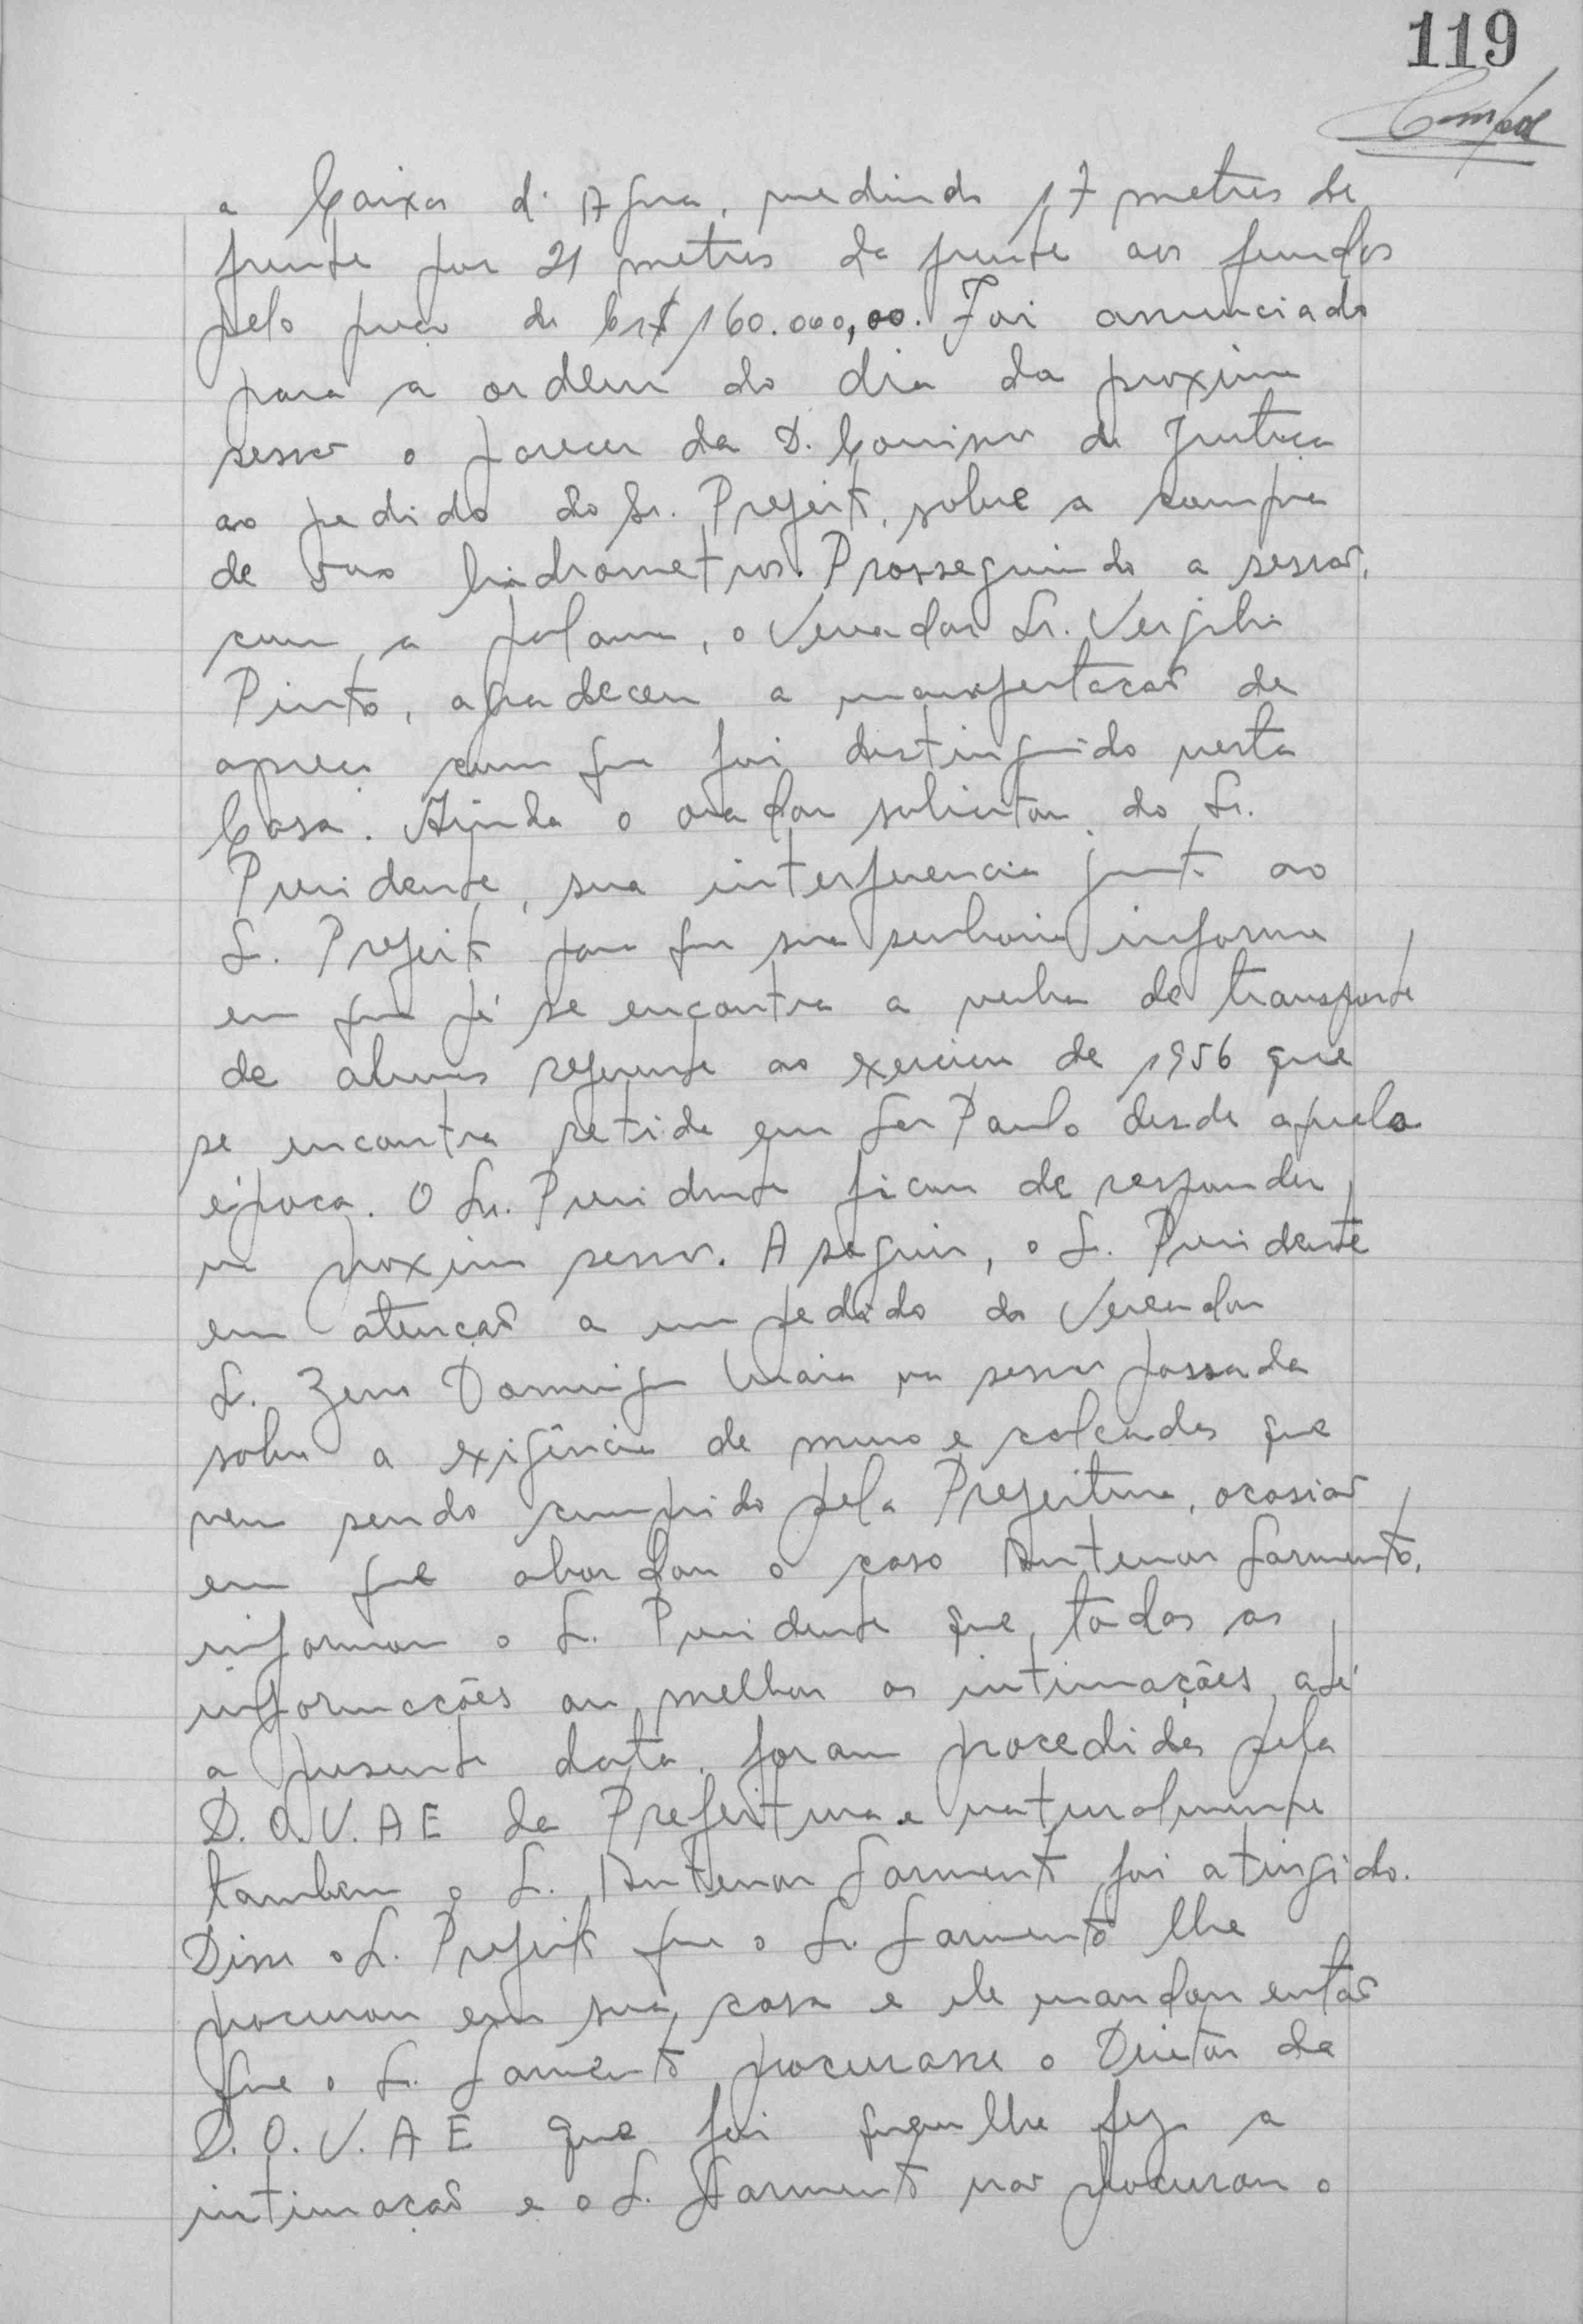 119
Campos
a Caixa d'Agua, medindo 17 metros de
frente por 21 metros da frente aos fundos
pelo preço de Cr$ 160.000,00. Foi anunciado
para a ordem do dia da proxima
sessão o parecer da D. Comissão de Justiça
ao pedido do Sr. Prefeito, sobre a compra
de 500 hidrometros. Prosseguindo a sessão,
com a palavra, o Vereador Sr. Vergilio
Pinto, agradeceu a manifestação de
apreço com que foi distinguido nesta
Casa. Ainda o orador solicitou do Sr.
Presidente, sua interferencia junto ao
Sr. Prefeito para que sua senhoria informe
em que pé se encontra a verba de transporte
de alunos referente ao exercicio de 1956 que
se encontra retida em São Paulo desde aquela
época. O Sr. Presidente ficou de responder
na proxima sessão. A seguir, o Sr. Presidente
em atenção a um pedido do Vereador
Sr. Zeno Domingos Maia na sessão passada
sobre a exigência de muro e calçadas que
vem sendo cumprido pela Prefeitura, ocasião
em que abordou o caso Antenor Sarmento,
informou o Sr. Presidente que, todas as
informações ou melhor as intimações até
a presente data, foram procedidas pela
D.O.V.A E da Prefeitura e naturalmente
tambem o Sr. Antenor Sarmento foi atingido.
Disse o Sr. Prefeito que o Sr. Sarmento lhe
procurou em sua casa e ele mandou então
que o Sr. Sarmento procurasse o Diretor da
D.O.V.A E que foi quem lhe fez a
intimação e o Sr. Sarmento não procurou o